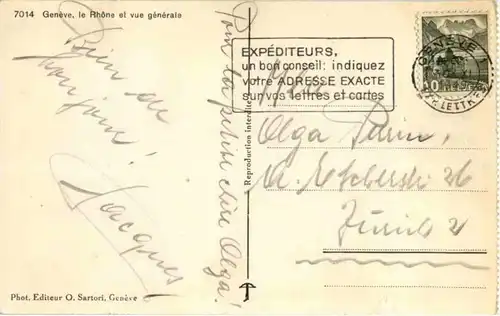 7014 Genève, le Rhône et vue générale
Rien de
bon jour!
Jacques
Phot. Editeur O. Sartori, Genève
Pour la petite chère Olga!
Reproduction interdite
EXPÉDITEURS,
un bon conseil: indiquez
votre ADRESSE EXACTE
sur vos lettres et cartes
GENÈVE 1
LETTR
10
Olga
A. Escherstr. 26
Zürich 2